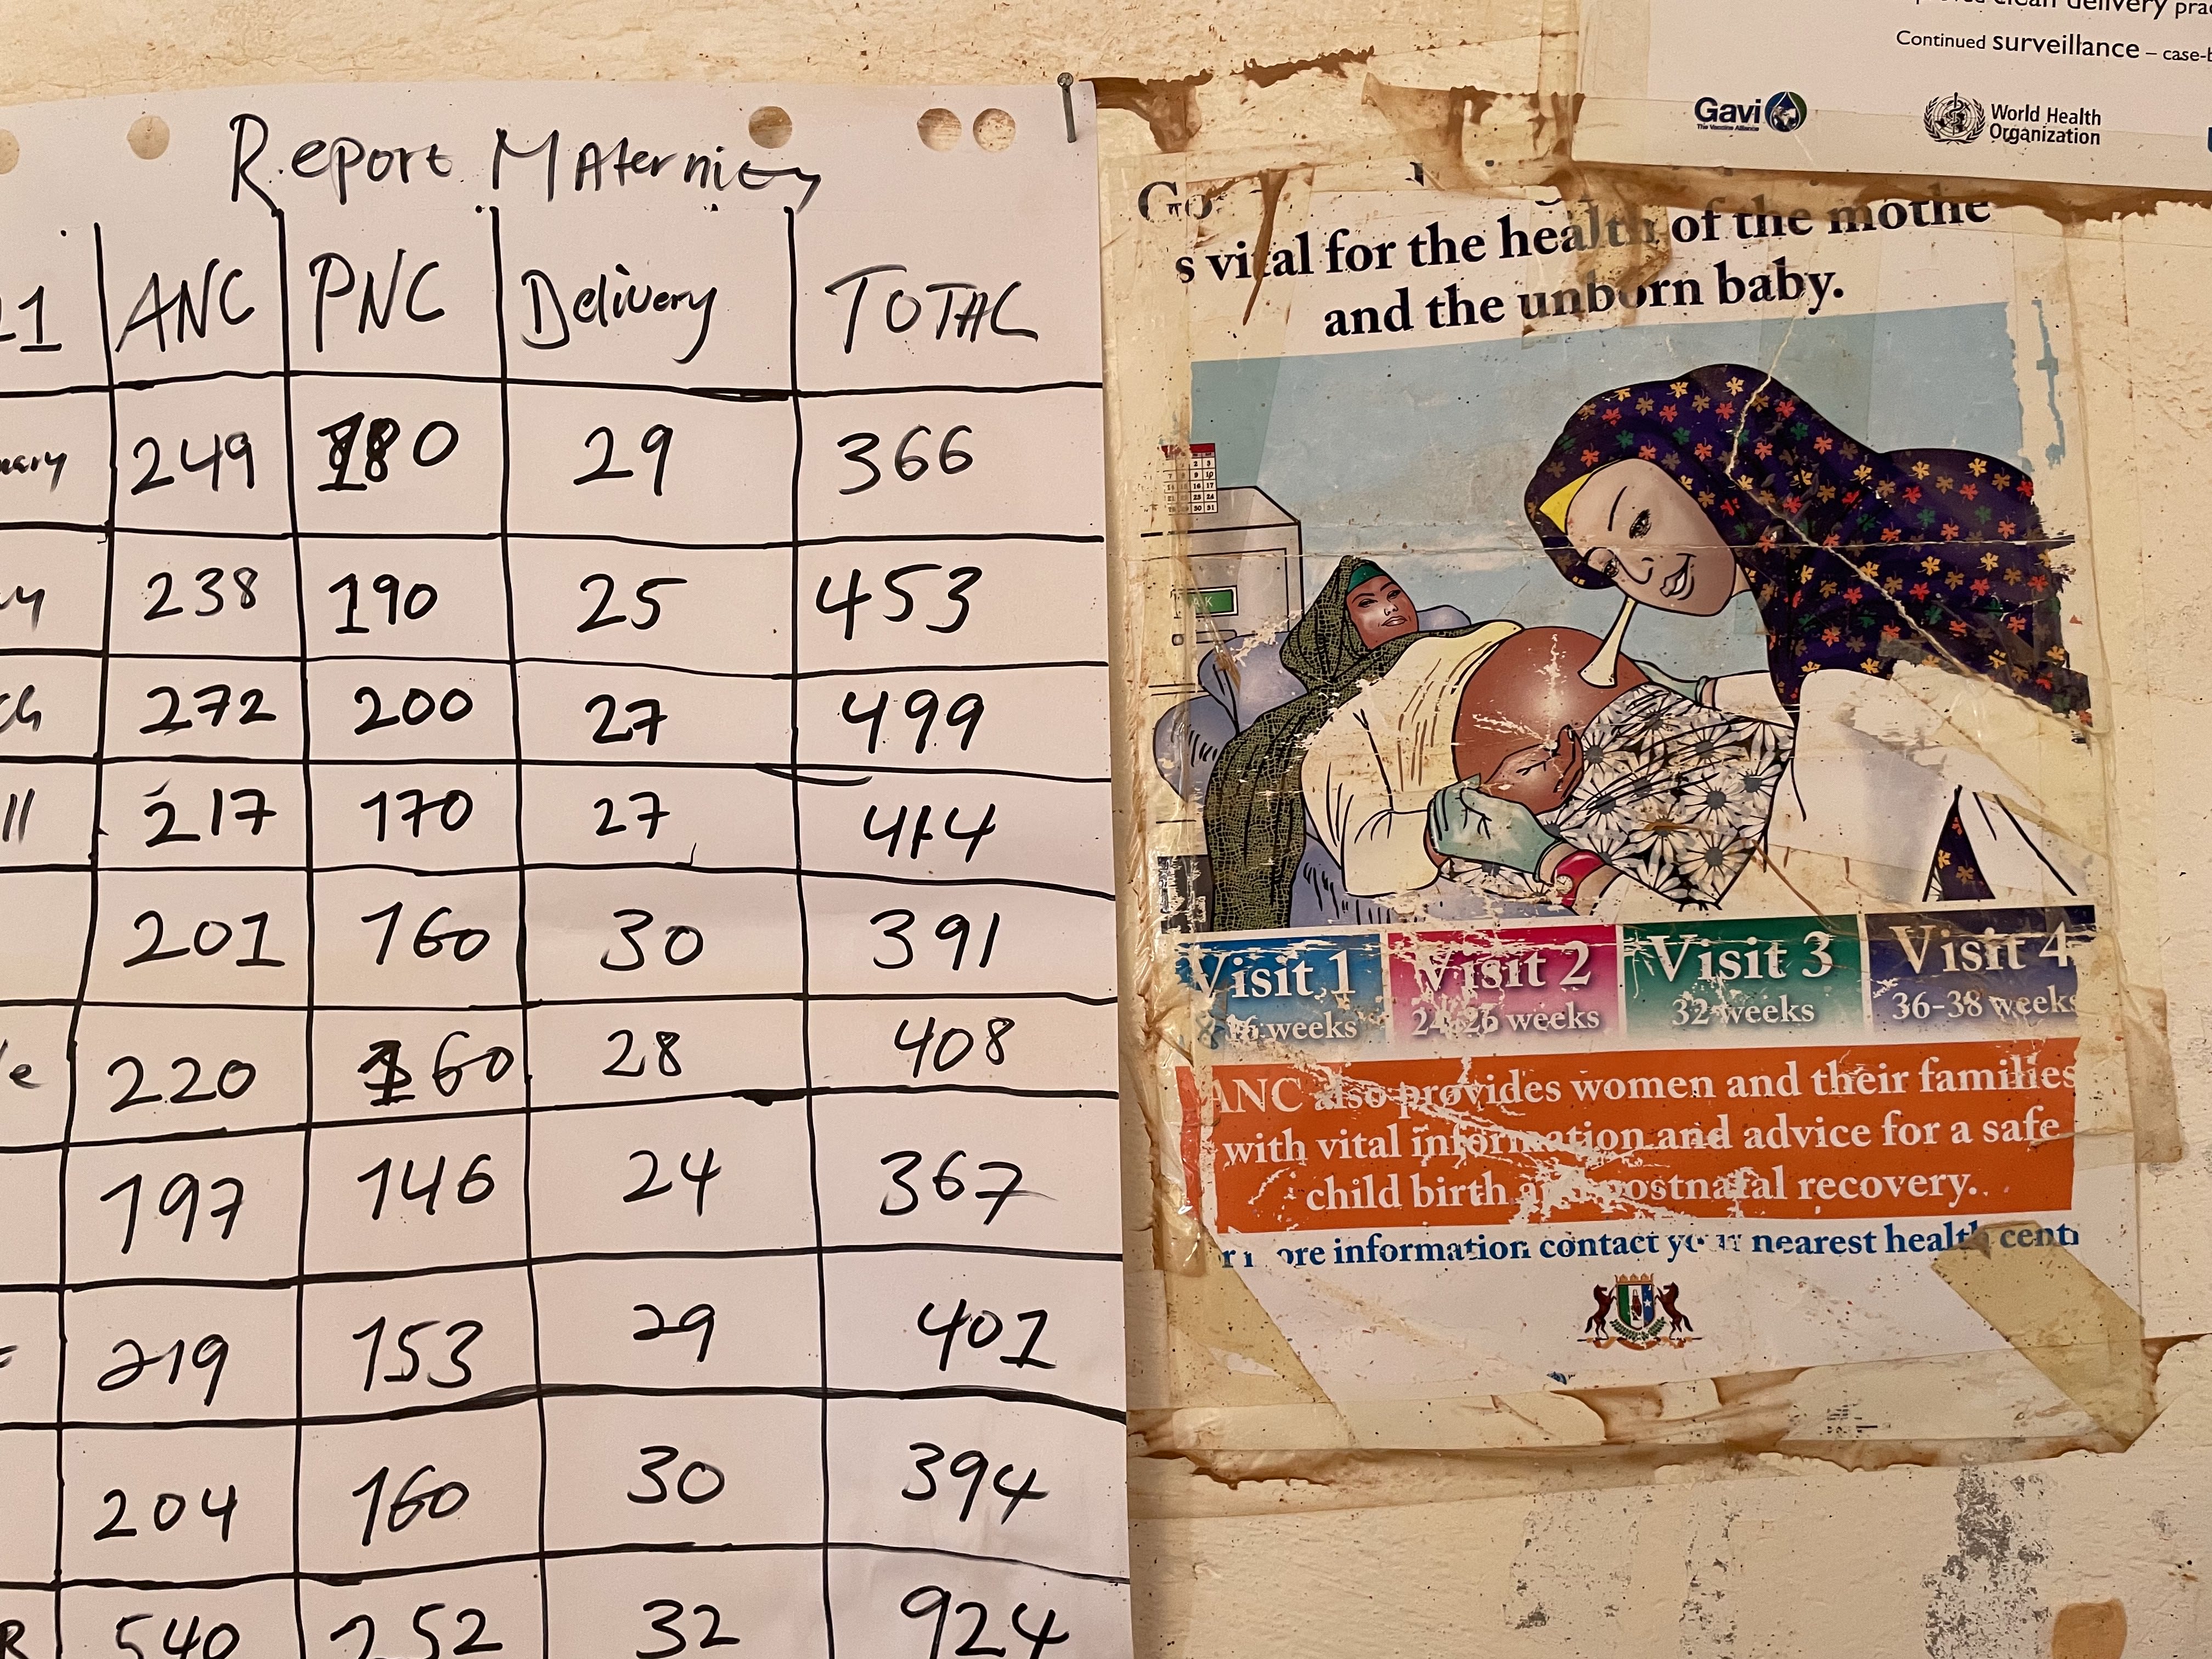 Report Maternity
ANC PNC Delivery TOTAL
249 180 29 366
238 190 25 453
272 200 27 499
217 170 27 414
201 160 30 391
220 160 28 408
197 146 24 367
219 153 29 401
204 160 30 394
540 252 32 924
clean delivery
Continued surveillance –
Gavi
The Vaccine Alliance
World Health
Organization
s vital for the health of the mothe
and the unborn baby.
Visit 1
weeks
Visit 2
24-26 weeks
Visit 3
32 weeks
Visit 4
36-38 weeks
ANC also provides women and their families
with vital information and advice for a safe
child birth and postnatal recovery.
ore information contact your nearest health cent